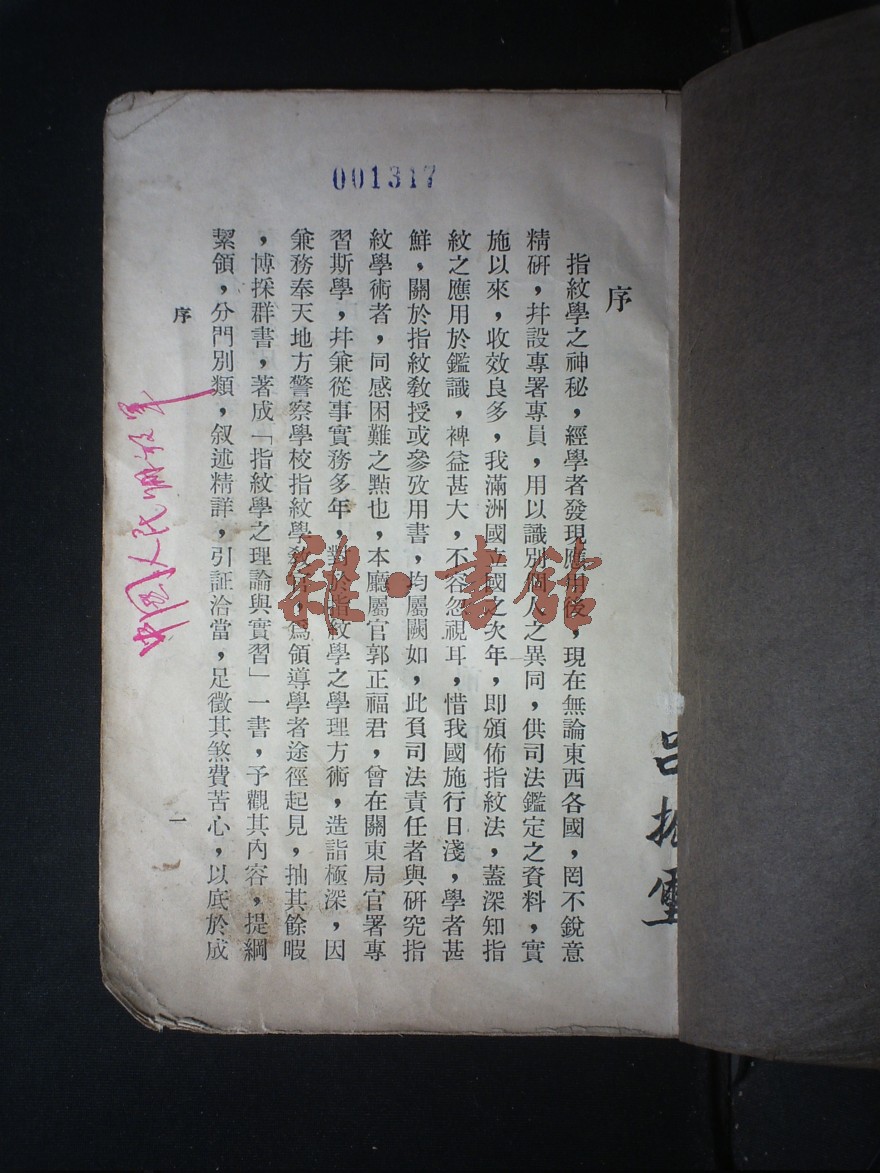 001317
序
指紋學之神秘，經學者發現應用後，現在無論東西各國，罔不銳意
精研，幷設專署專員，用以識別個人之異同，供司法鑑定之資料，實
施以來，收效良多，我滿洲國立國之次年，即頒佈指紋法，蓋深知指
紋之應用於鑑識，裨益甚大，不容忽視耳，惜我國施行日淺，學者甚
鮮，關於指紋敎授或參攷用書，均屬闕如，此負司法責任者與研究指
紋學術者，同感困難之點也，本廳屬官郭正福君，曾在關東局官署專
習斯學，幷兼從事實務多年，對於指紋學之學理方術，造詣極深，因
兼務奉天地方警察學校指紋學敎官，爲領導學者途徑起見，抽其餘暇
，博採群書，著成「指紋學之理論與實習」一書，予觀其內容，提綱
絜領，分門別類，叙述精詳，引証洽當，足徵其煞費苦心，以底於成
序
一
中國人民解放军
吕振
雜·書館